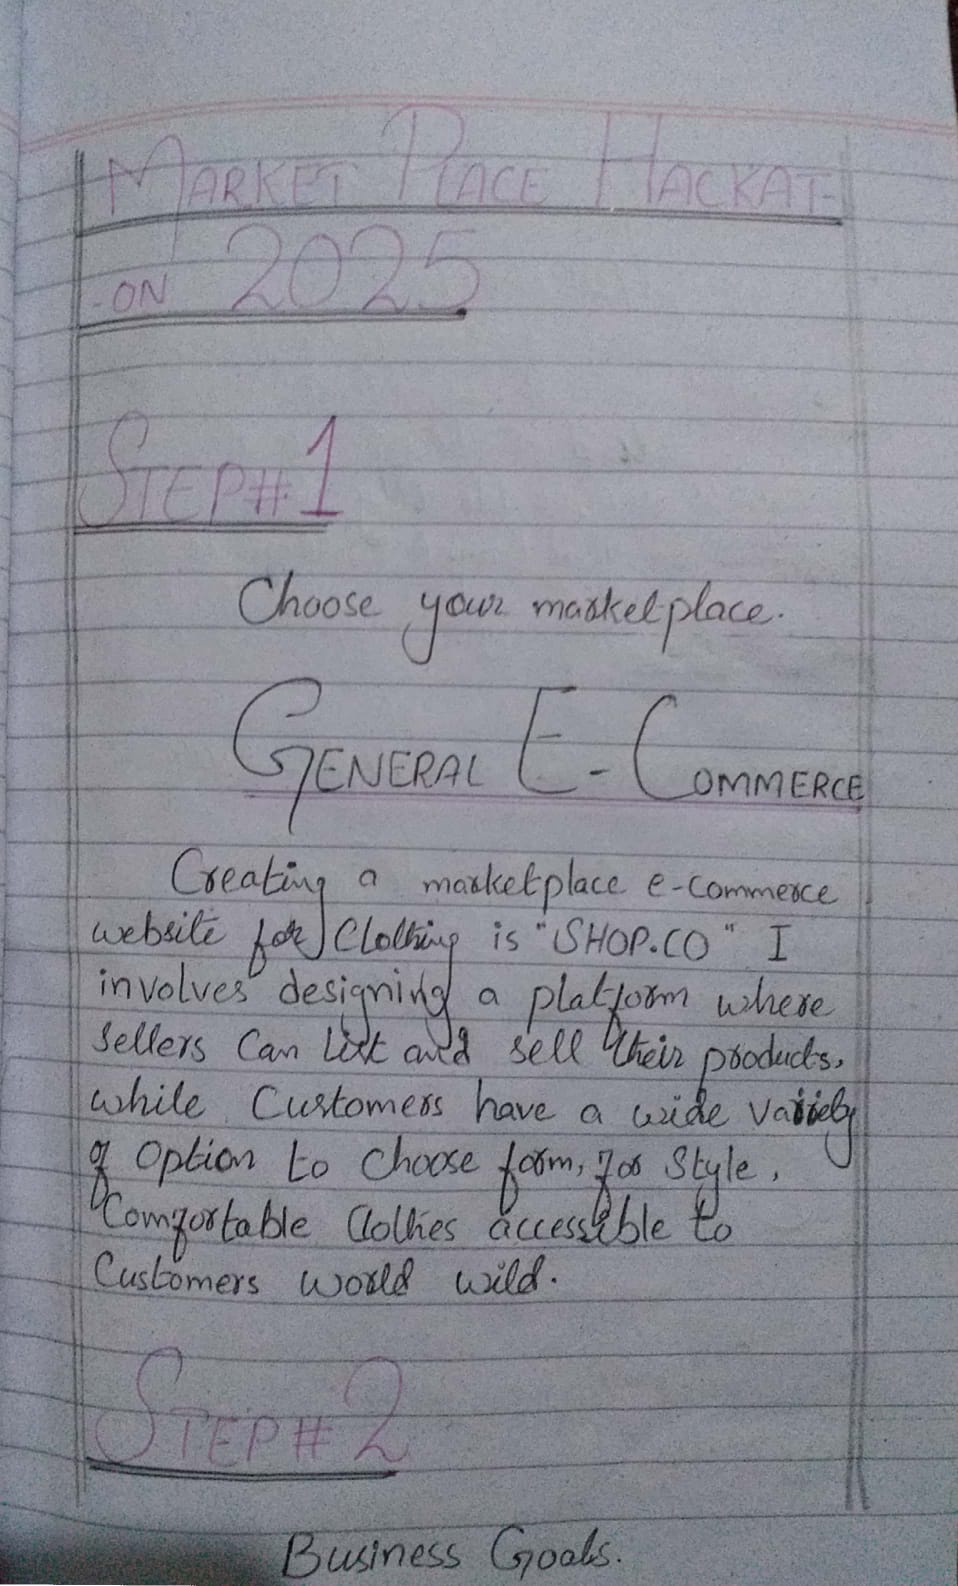 MARKET PLACE HACKAT-
-ON 2025
STEP#1
Choose your marketplace.
GENERAL E-COMMERCE
Creating a marketplace e-commerce
website for Clothing is "SHOP.CO" I
involves designing a platform where
sellers Can list and sell their products.
while Customers have a wide variety
of option to choose form, for Style,
Comfortable Clothes accessible to
Customers world wild.
STEP#2
Business Goals.